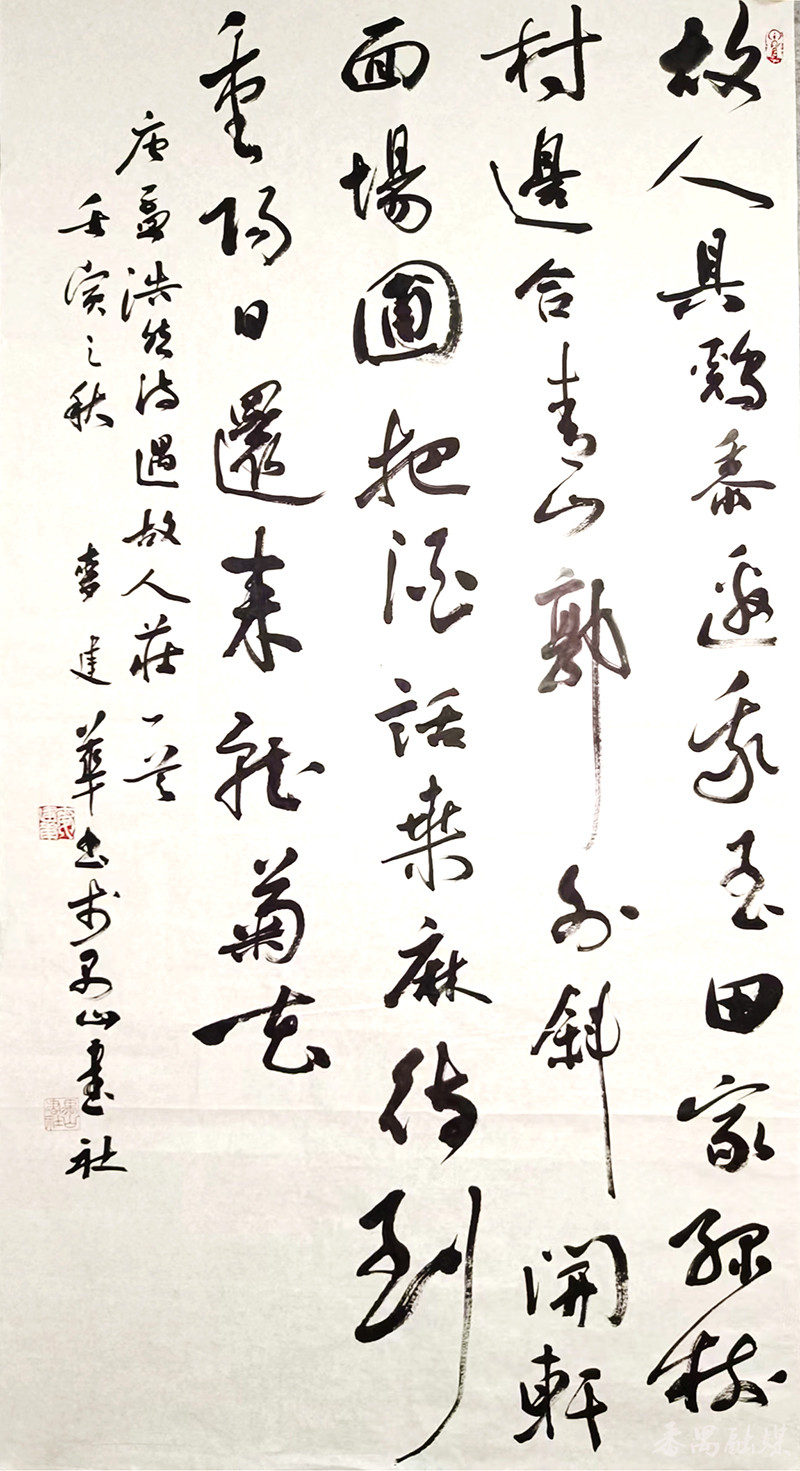 故人具鷄黍邀我至田家綠樹
村邊合青山郭外斜開軒
面場圃把酒話桑麻待到
重陽日還來就菊花
唐孟浩然詩過故人莊一首
壬寅之秋 麥建華書於禺山書社
番禺融媒